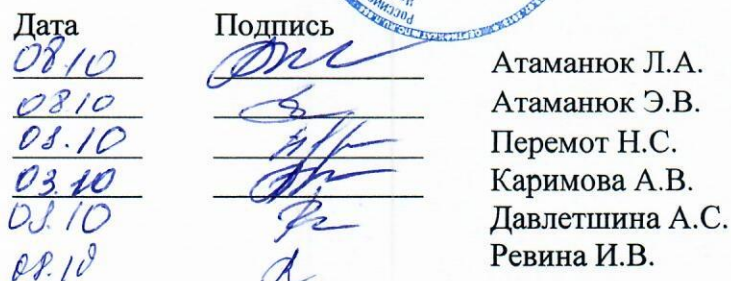 Дата Подпись
08/10 Атаманюк Л.А.
0810 Атаманюк Э.В.
08.10 Перемот Н.С.
03.10 Каримова А.В.
08.10 Давлетшина А.С.
08.10 Ревина И.В.